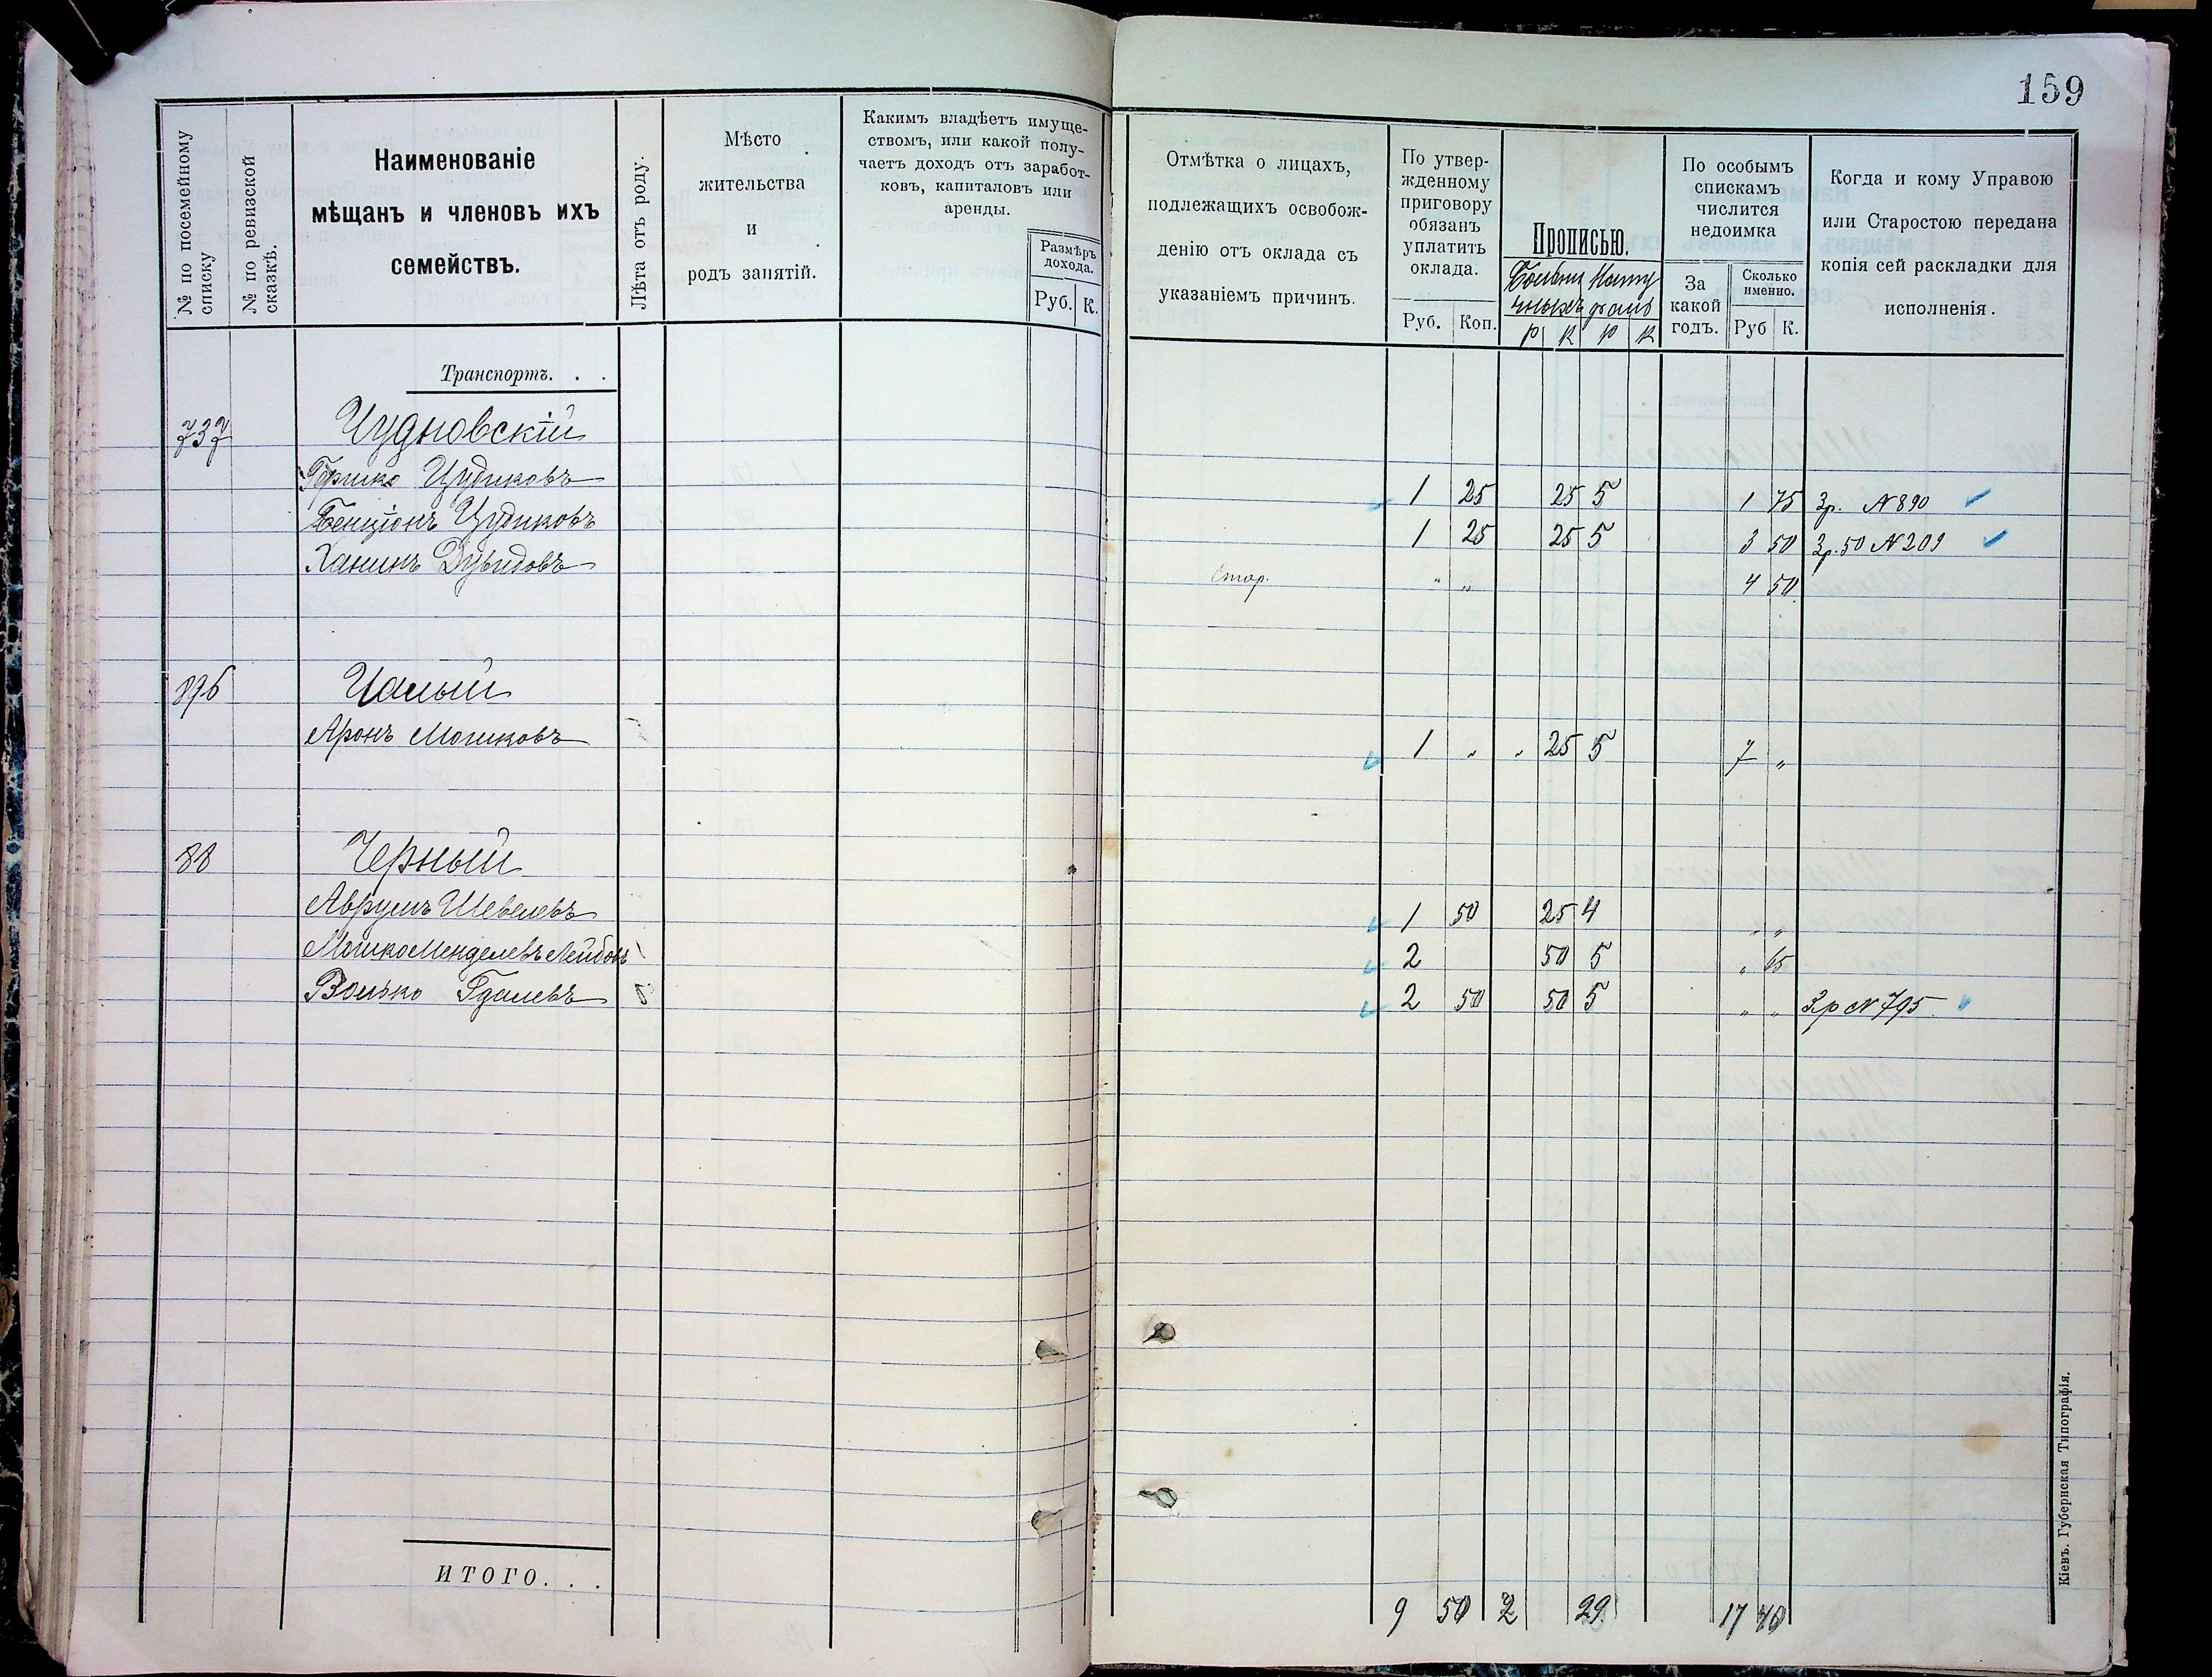 159
№ по посемейному списку
№ по ревизской сказкѣ.
Наименованіе
мѣщанъ и членовъ ихъ
семействъ.
Лѣта отъ роду.
Мѣсто
жительства
и
родъ занятій.
Какимъ владѣетъ имуще-
ствомъ, или какой полу-
чаетъ доходъ отъ заработ-
ковъ, капиталовъ или
аренды.
Размѣръ
дохода.
Руб. К.
Отмѣтка о лицахъ,
подлежащихъ освобож-
денію отъ оклада съ
указаніемъ причинъ.
По утвер-
жденному
приговору
обязанъ
уплатить
оклада.
Руб. Коп.
Прописью.
р к р к
По особымъ
спискамъ
числится
недоимка
За
какой
годъ.
Сколько
именно.
Руб К.
Когда и кому Управою
или Старостою передана
копія сей раскладки для
исполненія.
Транспортъ. . .
737 Чудновскій
Гершко Цудиковъ 1 25 25 5 1 75 3р. N 890
Бенціонъ Цудиковъ 1 25 25 5 3 50 3р. 50 N 209
Ханинъ Дувидовъ Стар. " " 4 50
896 Чалый
Аронъ Мошковъ 1 " " 25 5 7 "
88 Черный
Аврумъ Шевелевъ 1 50 25 4 " "
Мошко Менделевъ Лейбовъ 2 50 5 " 65
Волько Гдалевъ 2 50 50 5 " " 3р N 795
ИТОГО. . .
9 50 2 29 17 40
Кіевъ. Губернская Типографія.